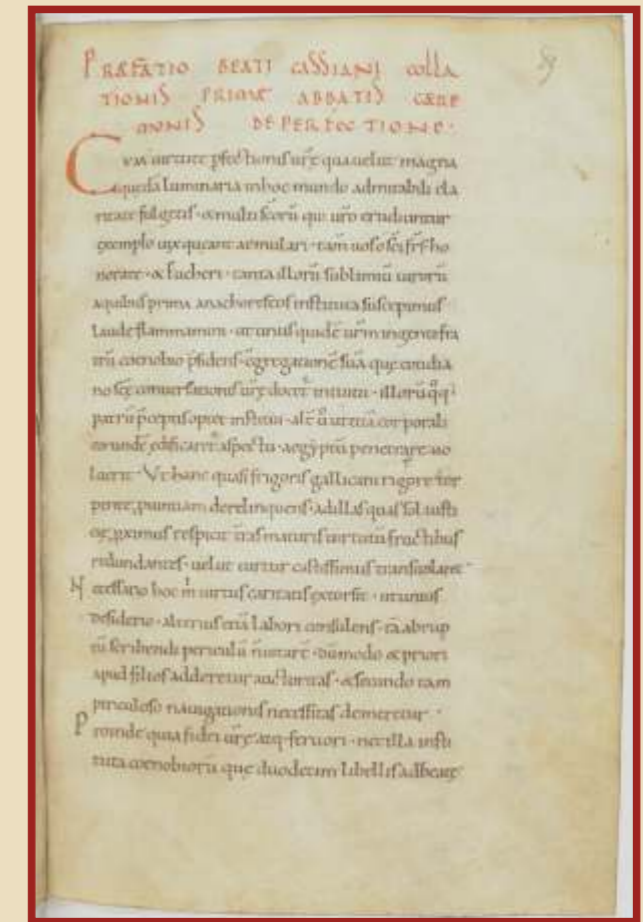 PRAEFATIO BEATI CASSIANI COLLA
TIONIS PRIMAE ABBATIS CAERE
MONIS DE PERFECTIONE·
Cum virtute pfectionis urę qua uelut magna
quędā luminaria in hoc mundo admirabili cla
ritate fulgetis · & multi scōrū qui uro erudiuntur
exemplo uix queant aemulari · tam̄ uos o sc̄i fr̄s ho
norate · & Eucheri · tanta illorū sublimiū uirorū
a quibus prima anachoreseos instituta suscepimus
laude flammamini · ut unus quidē ur̄m ingenti fra
trū coenobio p̄sidens · cōgregationē suā quę cotidia
no scę conuersationis urę docet intuitu · illorū q̄q
patrū p̄ceptis optet institui · alt ū ut etiā corporali
eorundē edificaret aspectu · aegyptū penetrare uo
luerit · Ut hanc quasi frigoris gallicani rigore tor
pentē, puinciam derelinquens · ad illas quas sol iusti
cię, pximus respicit tr̄as maturis uirtutū fructibus
redundantes · uelut turtur castissimus transuolaret
Necessario hoc m̄ uirtus caritatis extorsit · ut unius
desiderio · alterius etiā labori consulens · tā abrup
tū scribendi periculū n̄ uitarē · dūmodo & priori
apud filios adderetur auctoritas · & secundo tam
periculoso nauigationis necessitas demeretur ·
Proinde quia fidei urę atq· feruori · nec illa insti
tuta coenobiorū que duodecim libellis ad beatę